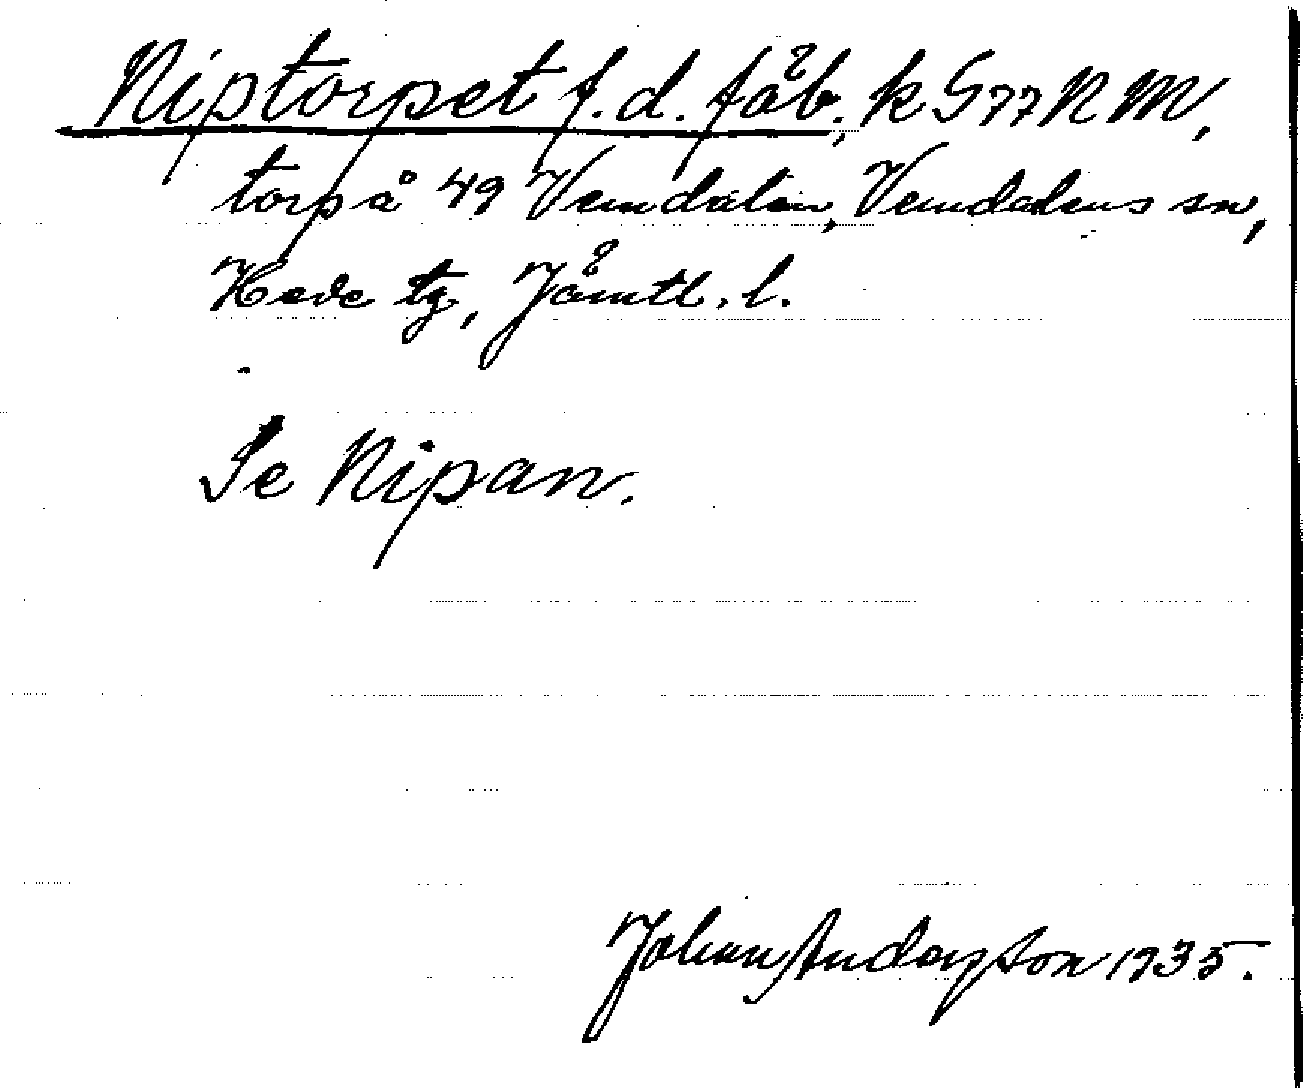 Niptorpet f.d. fäb., k S 77 N M,
torp å 49 Vemdalen, Vemdalens sn,
Hede tg, Jämtl. l.
Se Nipan.
Johan Anderson 1935.